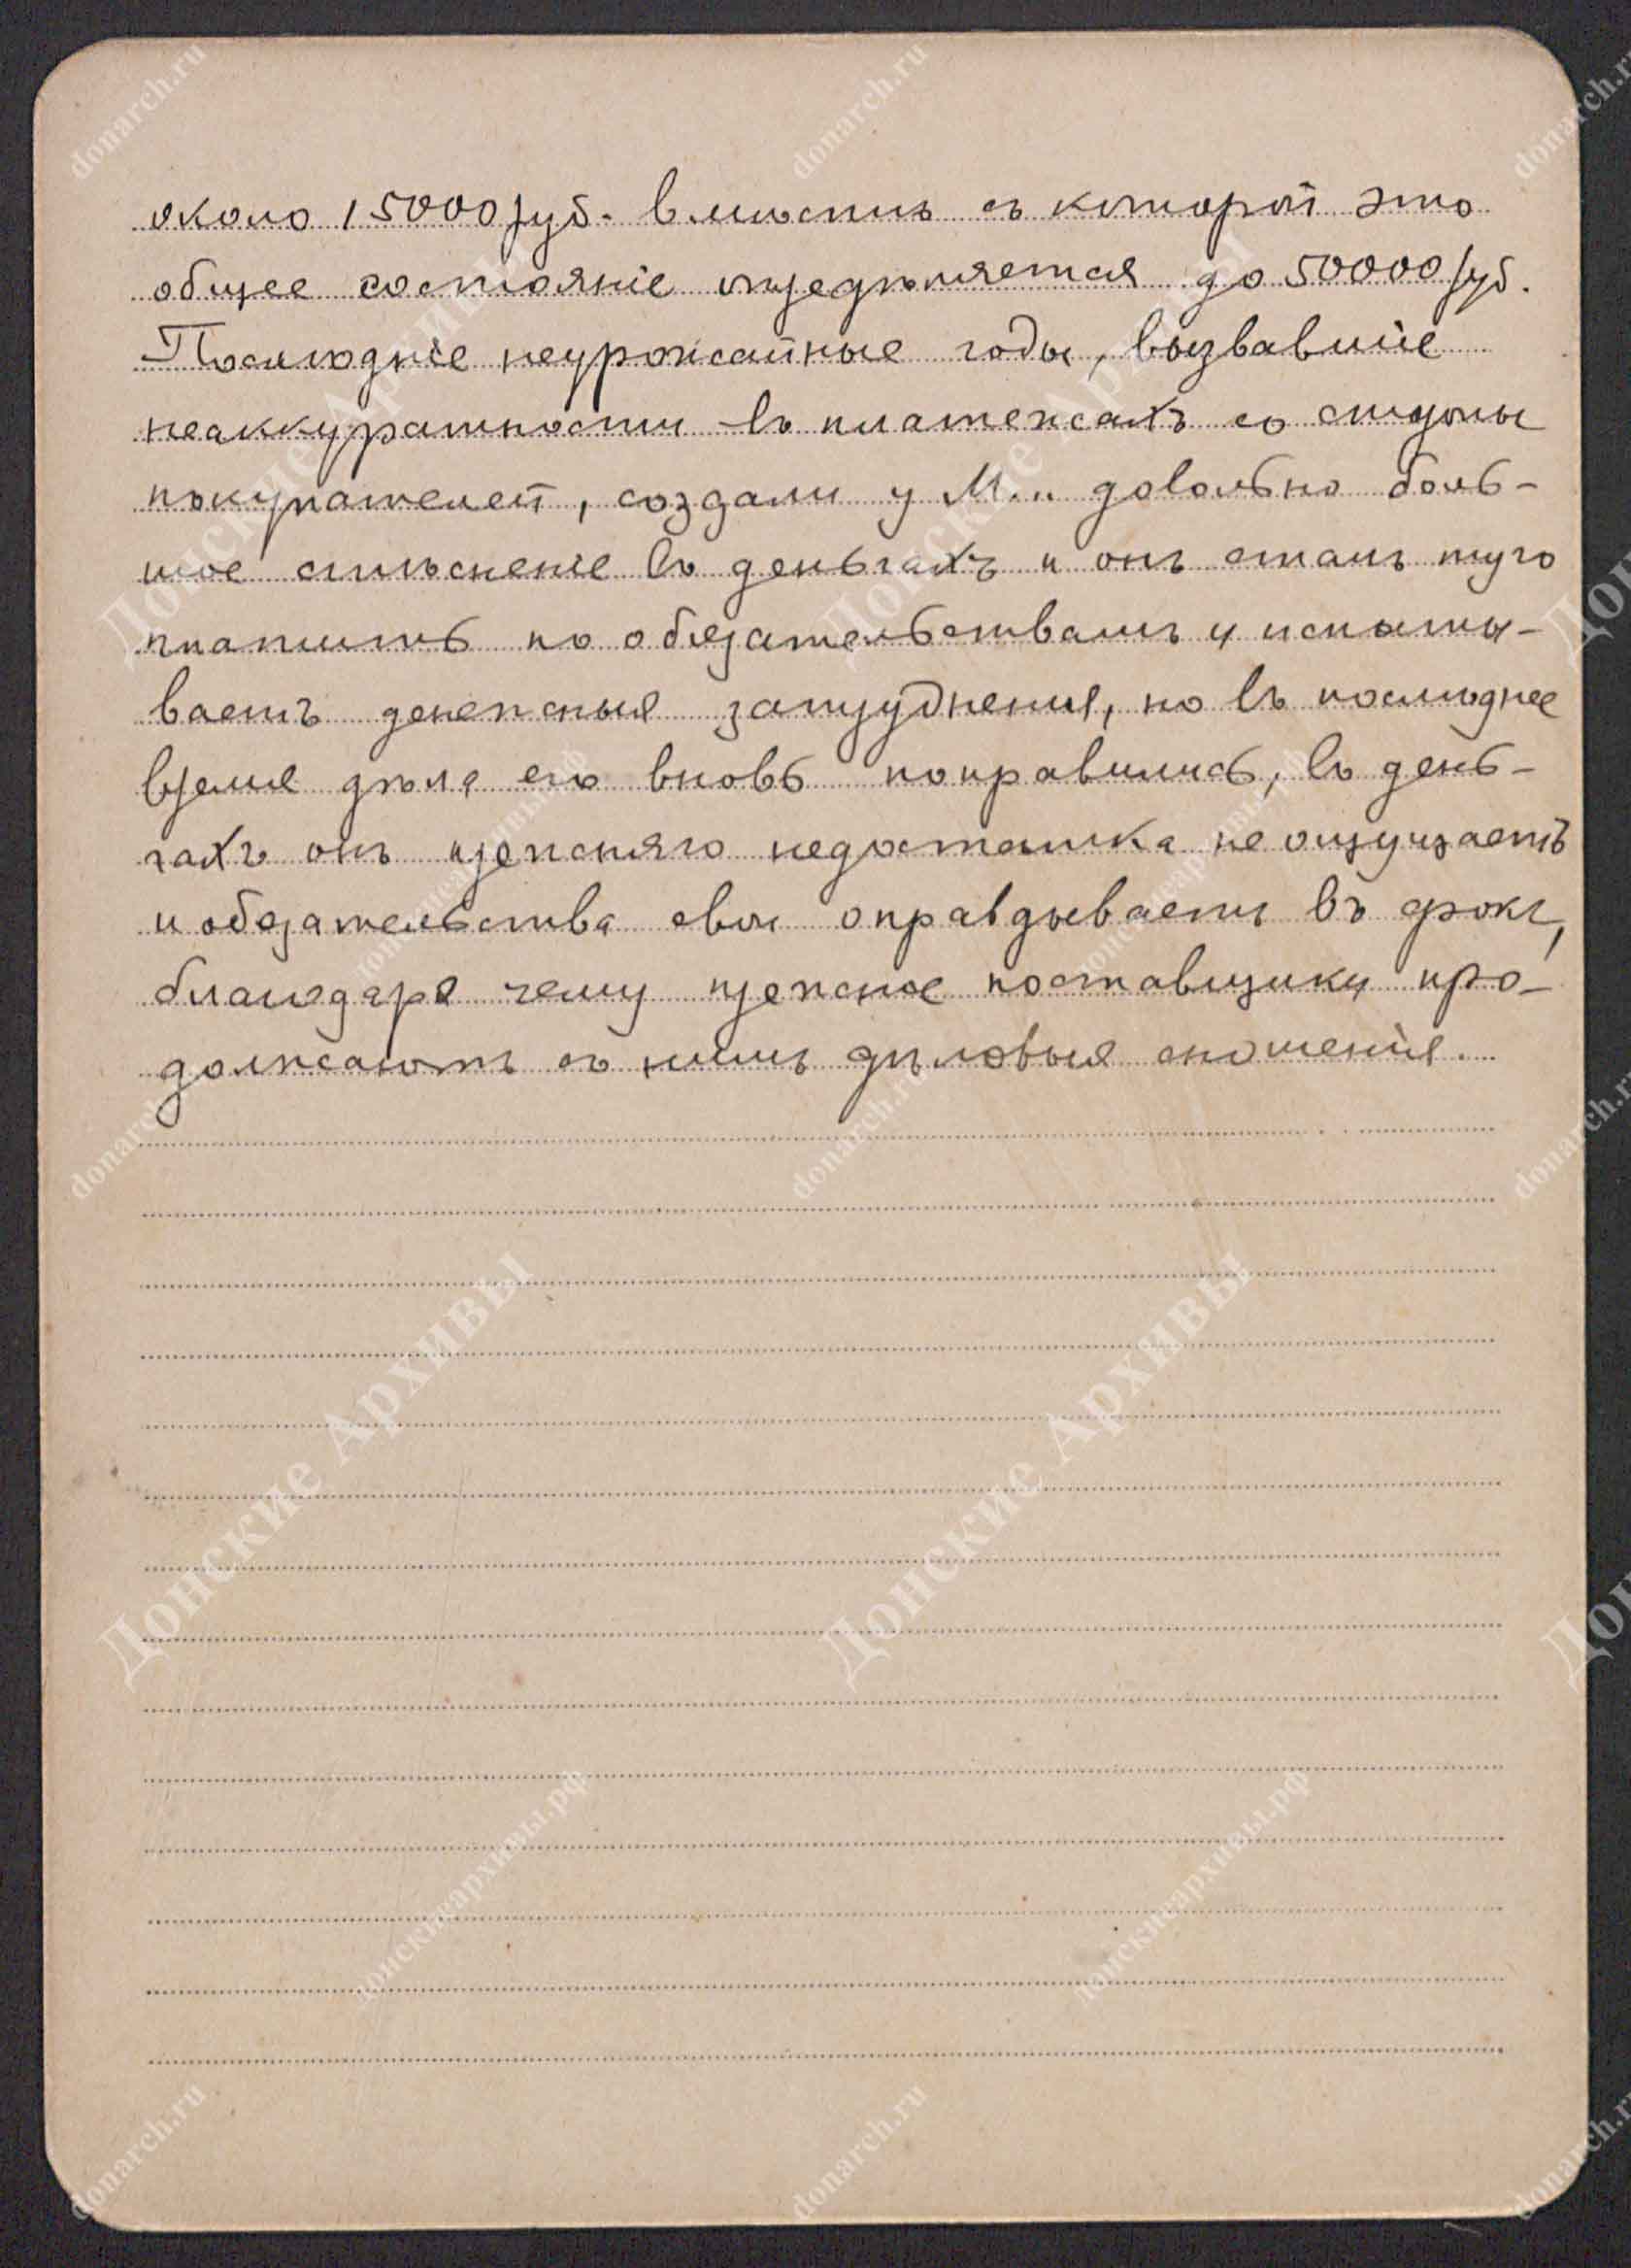 около 15000 руб. вмѣстѣ съ которой это
общее состояніе опредѣляется до 50000 руб.
Послѣдніе неурожайные годы, вызвавшіе
неаккуратности въ платежахъ со стороны
покупателей, создали у М... довольно боль-
шое стѣсненіе въ деньгахъ и онъ сталъ туго
платить по обязательствамъ и испыты-
ваетъ денежныя затрудненія, но въ послѣднее
время дѣла его вновь поправились, въ день-
гахъ онъ прежняго недостатка не ощущаетъ
и обязательства свои оправдываетъ въ срокъ,
благодаря чему прежніе поставщики про-
должаютъ съ нимъ дѣловыя сношенія.
donarch.ru
Донские Архивы
донскиеархивы.рф